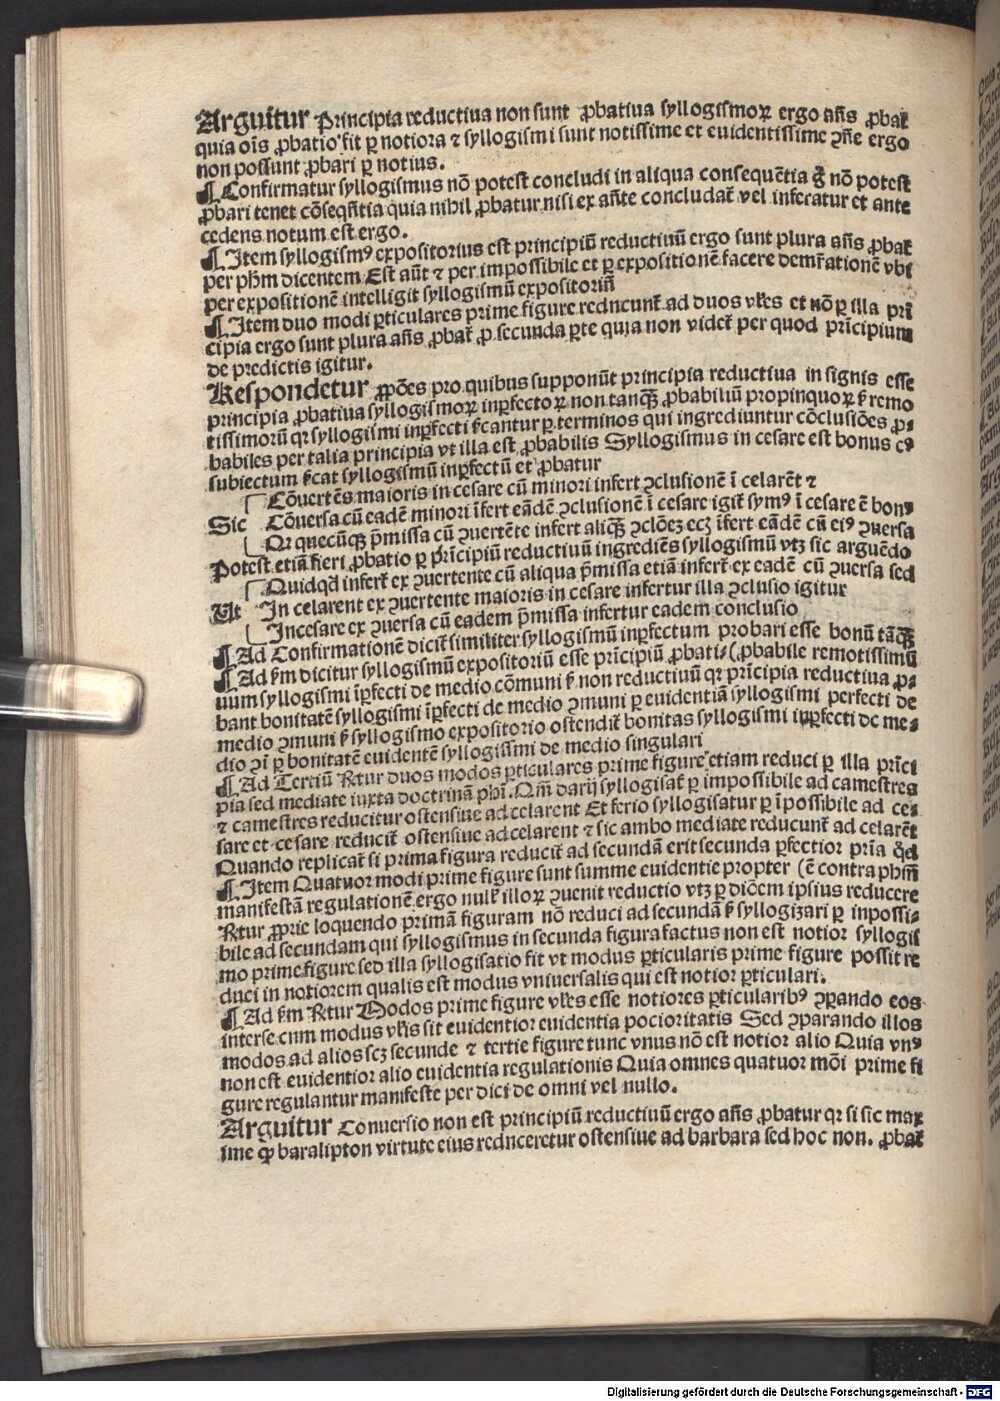 Arguitur Principia reductiua non sunt ꝓbatiua syllogismoꝝ ergo añs ꝓbat̃
quia oĩs ꝓbatio fit ꝑ notiora ⁊ syllogismi sunt notissime et euidentissime ꝯñe ergo
non possunt ꝓbari ꝑ notius.
¶ Confirmatur syllogismus nõ potest concludi in aliqua consequẽtia g̃ nõ potest
ꝓbari tenet cõseqñtia quia nihil ꝓbatur nisi ex añte concludat̃ vel inferatur et ante
cedens notum est ergo.
¶ Item syllogismꝰ expositorius est principiũ reductiuũ ergo sunt plura añs ꝓbat̃
per ph̃m dicentem Est aũt ⁊ per impossibile et ꝑ expositionẽ facere demr̃ationẽ vbi
per expositionẽ intelligit syllogismũ expositoriũ
¶ Item duo modi ꝑticulares prime figure reducunt̃ ad duos vl̃es et nõ ꝑ illa pri
cipia ergo sunt plura añs ꝓbat̃ ꝓ secunda ꝑte quia non videt̃ per quod prĩcipium
de predictis igitur.
Respondetur ꝓpões pro quibus supponũt principia reductiua in signis esse
principia ꝓbatiua syllogismoꝝ inꝑfectoꝝ non tanqꝫ ꝓbabiliũ propinquoꝝ s̃ remo
tissimorũ qr syllogismi inꝑfecti s̃cantur ꝑ terminos qui ingrediuntur cõclusiões ꝓ⸗
babiles per talia principia vt illa est ꝓbabilis Syllogismus in cesare est bonus cꝰ
subiectum s̃cat syllogismũ inꝑfectũ et ꝓbatur
Cõuertẽs maioris in cesare cũ minori infert ꝯclusionẽ ĩ celarẽt ⁊
Sic Cõuersa cũ eadẽ minori ĩfert eãdẽ ꝯclusionẽ ĩ cesare igit̃ symꝰ ĩ cesare ẽ bonꝰ
Qr quecũqꝫ p̃missa cũ ꝯuertẽte infert aliqꝫ ꝯclõeꝫ ecꝫ ĩfert eãdẽ cũ eiꝰ ꝯuersa
Potest etiã fieri ꝓbatio ꝑ prĩcipiũ reductiuũ ingrediẽs syllogismũ vtꝫ sic arguẽdo
Quidqd infert̃ ex ꝯuertente cũ aliqua p̃missa etiã infert̃ ex eadẽ cũ ꝯuersa sed
Ut In celarent ex ꝯuertente maioris in cesare infertur illa ꝯclusio igitur
Incesare ex ꝯuersa cũ eadem p̃missa infertur eadem conclusio
¶ Ad Confirmationẽ dicit̃ similiter syllogismũ inꝑfectum probari esse bonũ tãqꝫ
¶ Ad s̃m dicitur syllogismũ expositoriũ esse prĩcipiũ ꝓbati⸗ (ꝓbabile remotissimũ
uum syllogismi ĩꝑfecti de medio cõmuni s̃ non reductiuũ qr principia reductiua ꝓ⸗
bant bonitatẽ syllogismi ĩꝑfecti de medio ꝯmuni ꝑ euidentiã syllogismi perfecti de
medio ꝯmuni s̃ syllogismo expositorio ostendit̃ bonitas syllogismi iꝑꝑfecti de me⸗
dio ꝯi ꝑ bonitatẽ euidentẽ syllogissmi de medio singulari
¶ Ad Tertiũ Rtur duos modos ꝑticulares prime figure etiam reduci ꝑ illa prĩci
pia sed mediate iuxta doctrinã phi. Qm̃ darij syllogisat̃ ꝑ impossibile ad camestres
⁊ camestres reducitur ostensiue ad celarent Et ferio syllogisatur ꝑ ĩpossibile ad ce⸗
sare et cesare reducit̃ ostensiue ad celarent ⁊ sic ambo mediate reducunt̃ ad celarẽt
Quando replicat̃ si prima figura reducit̃ ad secundã erit secunda ꝑfectior prĩa q̃d
¶ Item Quatuor modi prime figure sunt summe euidentie propter (ẽ contra phm̃
manifestã regulationẽ ergo nulł illoꝝ ꝯuenit reductio vtꝫ ꝑ diõem ipsius reducere
Rtur ꝓprie loquendo primã figuram nõ reduci ad secundã s̃ syllogizari ꝑ inpossi⸗
bile ad secundam qui syllogismus in secunda figura factus non est notior syllogis
mo prime figure sed illa syllogisatio fit vt modus ꝑticularis prime figure possit re
duci in notiorem qualis est modus vniuersalis qui est notior ꝑticulari.
¶ Ad s̃m Rtur Modos prime figure vl̃es esse notiores ꝑticularibꝰ ꝯꝑando eos
interse cum modus vl̃is sit euidentior euidentia pocioritatis Sed ꝯparando illos
modos ad alios scꝫ secunde ⁊ tertie figure tunc vnus nõ est notior alio Quia vnꝰ
non est euidentior alio euidentia regulationis Quia omnes quatuor mõi prime fi
gure regulantur manifeste per dici de omni vel nullo.
Arguitur Conuersio non est principiũ reductiuũ ergo añs ꝓbatur qr si sic max
ime qꝫ baralipton virtute eius reduceretur ostensiue ad barbara sed hoc non. ꝓbat̃
Digitalisierung gefördert durch die Deutsche Forschungsgemeinschaft - DFG